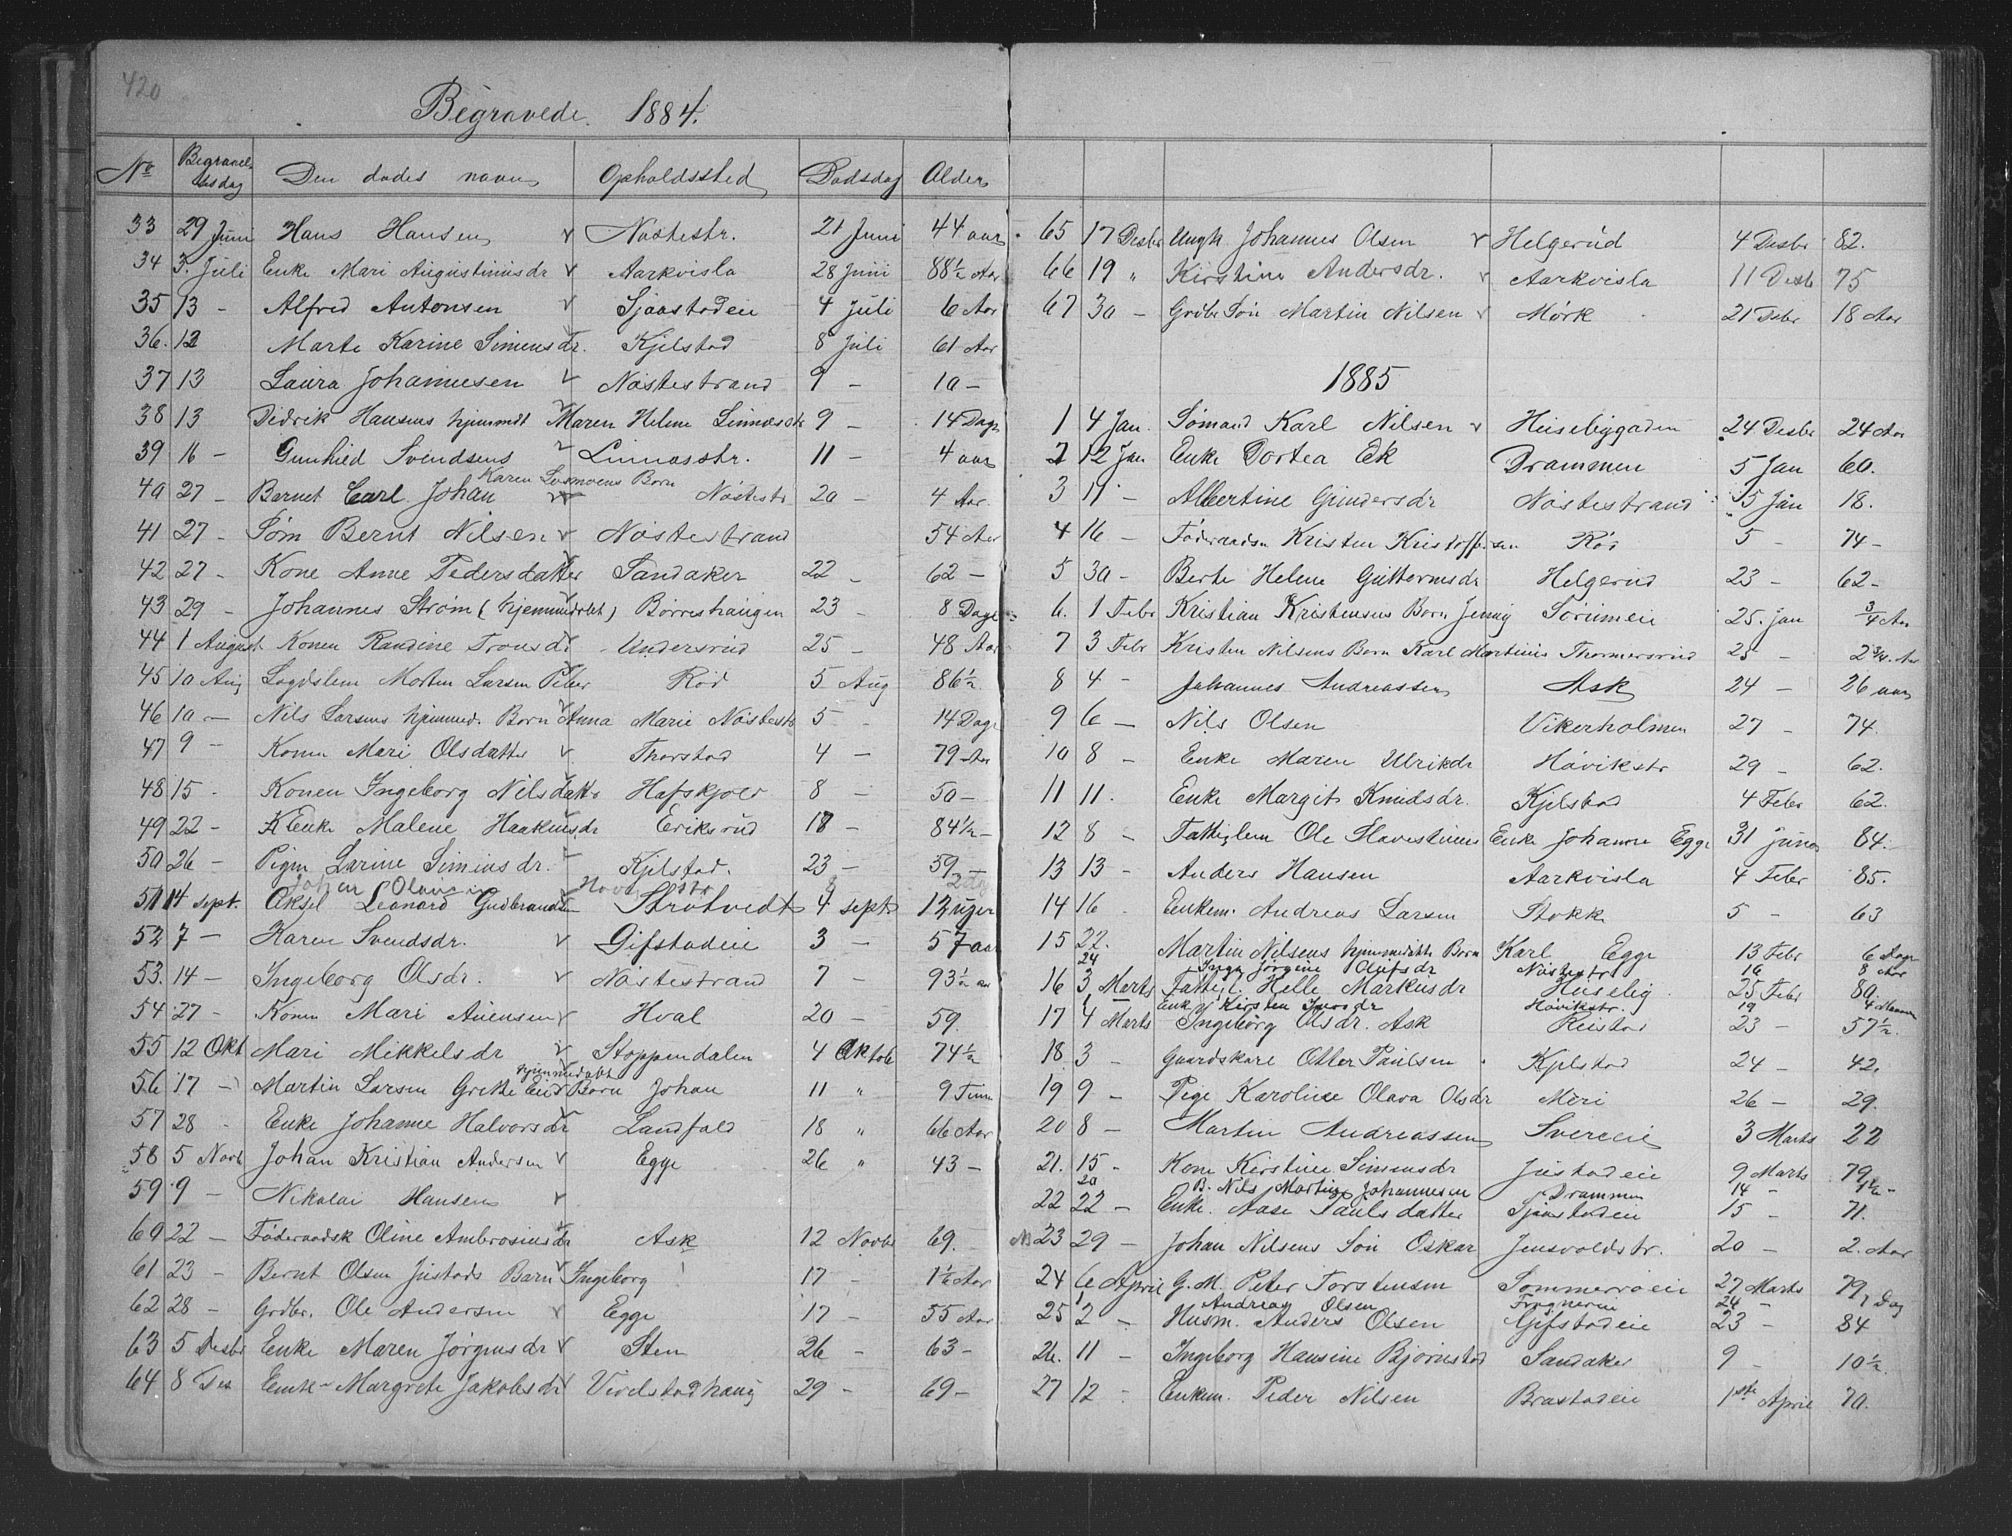 420
Begravede 1884.
No Begravelsesdag Den dødes navn Opholdssted Dødsdag Alder
33 29 Juni Hans Hansen Nøstestr. 21 Juni 44 aar
34 3. Juli Enke Mari Augustinusdr Aarkvisla 28 Juni 88½ Aar
35 13 - Alfred Antonsen Sjaastadeie 4 Juli 6 Aar
36. 12 Marte Karine Simensdr. Kjelstad 8 Juli 61 Aar
37 13 Laura Johannesen Nøstestrand 9 - 10 -
38 13 Didrik Hansens hjemmdt Maren Helene Linnæsstr 9 - 14 Dage
39 16 - Gunhild Svendsens Linnæsstr. 11 - 4 aar
Karen Born
40 27 - Barnet Carl Johan Nøstestr 20 - 4 Aar.
41 27 - Søm Bernt Nilsen Nøstestrand 54 Aar
42 27 - Kone Anne Pedersdatter Sandaker 22 - 62 -
43 29 - Johannes Strøm (hjemmedøbt) Børreshaugen 23 - 8 Dage
44 1 August Konen Randine Tronsdr Undersrud 25 - 48 Aar
45 10 Aug Lægdslem Morten Larsen Peter Rød 5 Aug 86½
46 10 - Nils Larsens hjemmed. Born Anna Marie Nøstestr 5 - 14 Dage
47 9 - Konen Mari Olsdatter Thorstad 4 - 79 Aar
48 15 - Konen Ingeborg Nilsdatter Hafskjold 8 - 50 -
49 22 - Enke Malene Haakensdr Eriksrud 18 - 84½ -
50 26 - Pigen Larine Simensdr. Kjelstad. 23 - 59 -
Johan Olavsen
51 14 sept. Aksel Leonard Gudbrandsen Strøtvedt 4 sept 12 uger
52 7 - Karen Svendsdr. Gifstadeie 3 - 57 aar
53. 14 - Ingeborg Olsdr. Nøstestrand 7 - 93½ aar
54 27 - Konen Mari Auensen Hval 20 - 59.
55 12 Okt Mari Mikkelsdr Stoppendalen 4 Oktob 74½
hjemmedøbt
56 17 - Martin Larsen Grette Eies Born Johan 11 " 9 Timer
57 28 - Enke Johanne Halvorsdr Landfald 18 " 66 Aar
58 5 Novb Johan Kristian Andersen Egge 26 " 43 -
59 9 - Nikolai Hansen
60 22 - Føderaadsk Oline Ambrosiusdr Ask 12 Novbr 69.
61 23 - Bernt Olsen Justads Barn Ingeborg 17 - 1½ Aar
62 28 - Grdbr. Ole Andersen Egge 17 - 55 Aar
63 5 Desbr Enke Maren Jørgensdr Sten 26 - 63 -
64 8 Des Enke Margrete Jakobsdr Vivelstadhaug 29 - 69 -
65 17 Desbr Ungk Johannes Olsen Helgerud 4 Desbr 82.
66 19 " Kirstine Andersdr. Aarkvisla 11 Desb 75
67 30 - Grdbr Søn Martin Nilsen Mørk 21 Desbr 18 Aar
1885
1 4 Jan. Sømand Karl Nilsen Husebygaden 24 Desbr 24 Aar
2 12 Jan Enke Dortea Ek Drammen 5 Jan 60.
3 11 - Albertine Gundersdr Nøstestrand 5 Jan 18.
4 16 - Føderaadsm Kristen Kristoffersen Rød 5 - 74 -
5 30 - Berte Helene Guttormsdr Helgerud 23 - 62 -
6. 1 Febr Kristian Kristensens Born Jenny Sørumeie 25. jan ¾ Aar
7 3 Febr Kristen Nilsens Born Karl Martinius Thormersrud 25 - 2¾ Aar
8 4 - Johannes Andreassen Ask 24 - 26 aar
9 6 - Nils Olsen Vikerholmen 27 - 74.
10 8 - Enke Maren Ulrikdr Høvikstr 29 - 62.
11 11. Enke Margit Knudsdr. Kjelstad 4 Febr 62.
12 8 - Fattiglem Ole Slavestuens Enke Johanne Egge 31 januar 84.
13 13 - Anders Hansen Aarkvisla 4 Febr 85.
14 16 - Enkem. Andreas Larsen Stokk 5 - 63
15 22. Martin Nilsens hjemmedøbte Born Karl Egge 13 Febr 6 Dage
24 Inga Jørgine Olufsdr Nøstestr 16 8 Aar
16 3 Marts Fattigl. Helle Markusdr Huseby 25 Febr 80.
1 Enke Kirsten Iversdr Høvikstr. 19 4 Maaneder
17 4 Marts Ingeborg Olsdr. Ask Reistad 23 - 57½.
18 3 - Gaardskarl Otter Paulsen Kjelstad 24 - 42.
19 9 - Pige Karoline Olava Olsdr Meri 26 - 29.
20 8 - Marten Andreassen Svereie 3 Marts 22
21. 15 - Kone Kirstine Simensdr Justadeie 9 Marts 79
20 B. Nils Martin Johannesen Drammen 14 - 1½ -
22 22 - Enke. Aase Paulsdatter Sjaastadeie 15 - 71.
N 23 29 - Johan Nilsens Søn Oskar Jensvoldstr. 20 - 2. Aar
24 6 April G. M. Peter Torstensen Sommerroeie 27 Marts 79
1 Andreas Olsen Frognereie 26 - 1 Dag
25 2 - Husm. Anders Olsen Gifstadeie 23 - 84
26. 11 - Ingeborg Hansine Bjørnstad Sandaker 9 - 10½
27 12 - Enkem. Peder Nilsen Brastadeie 1ste April 70.